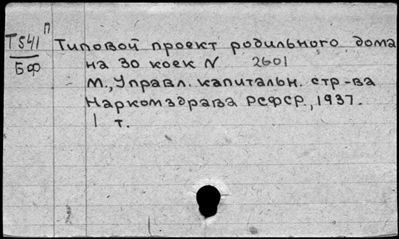 П
Т541
БФ
Типовой проект родильного дома
на 30 коек N 2601
М., Управл. капитальн. стр-ва
Наркомздрава РСФСР, 1937.
1 т.